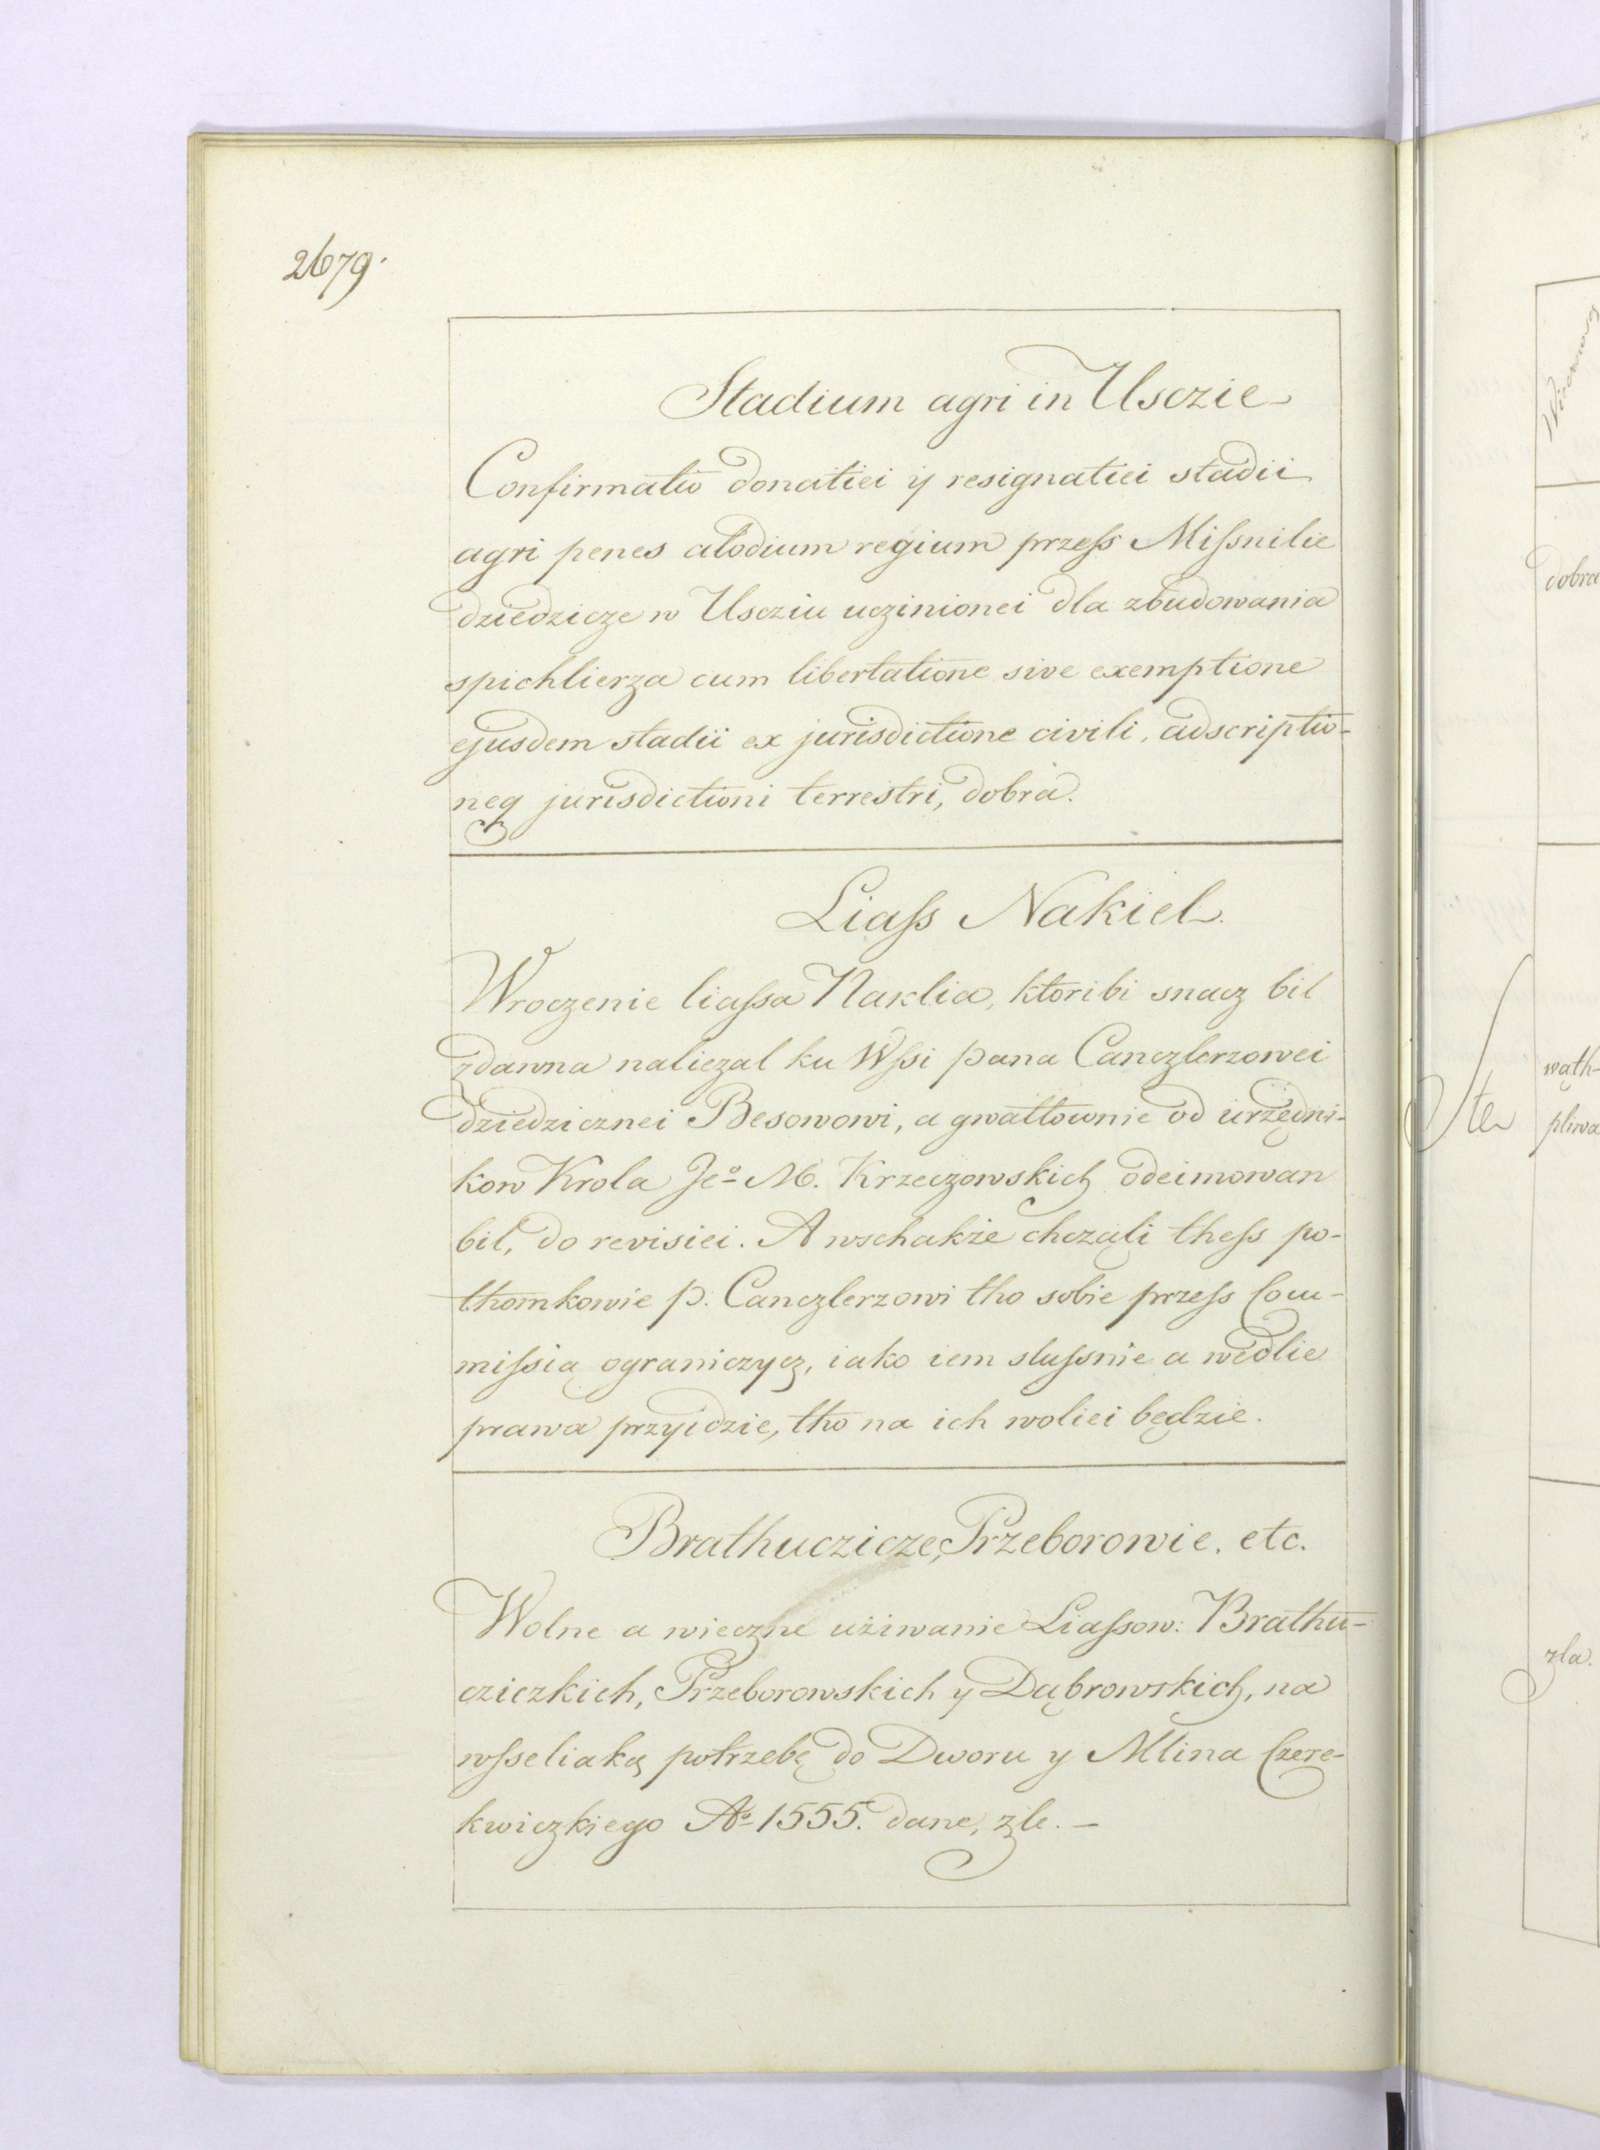 2679.
Stadium agri in Usczie
Confirmatio donatiei y resignatiei stadii
agri penes alodium regium przeſs Miſsnilie
dziedzicze w Uscziu uczinionei dla zbudowania
spichlierza cum libertatione sive exemptione
ejusdem stadii ex jurisdictione civili, adscriptio-
neq jurisdictioni terrestri, dobra.
Liaſs Nakiel.
Wroczenie liaſsa Naklia, ktoribi snacz bil
zdawna naliezal ku Wſsi pana Canczlerzowei
dziedzicznei Besowowi, a gwaltownie od urzędni-
kow Krola Jeo M. Krzeczowskich odeimowan
bil, do revisiei. A wschakże chcząli theſs po-
thomkowie p. Canczlerzowi tho sobie przeſs Com-
miſsią ograniczycz, iako iem sluſsnie a wedlie
prawa przyidzie, tho na ich woliei będzie.
Brathuczicze, Przeborowie. etc.
Wolne a wieczne używanie Liaſsow: Brathu-
cziczkich, Przeborowskich y Dąbrowskich, na
wſseliaką potrzebę do Dworu y Mlina Czere-
kwiczkiego Ao 1555. dane, zle. —
dobra
wąth-
pliwa
zla.